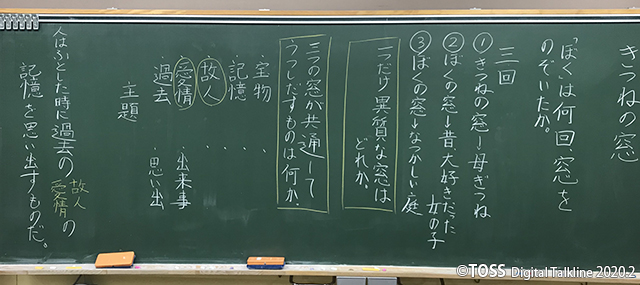 きつねの窓
「ぼく」は何回窓を
のぞいたか。
三回
①きつねの窓→母ぎつね
②ぼくの窓→昔、大好きだった
女の子
③ぼくの窓→なつかしい庭
一つだけ異質な窓は
どれか。
三つの窓が共通して
うつしだすものは何か。
・宝物
・記憶
・故人
・愛情
・過去
・出来事
・思い出
主題
人はふとした時に過去の故人愛情の
記憶を思い出すものだ。
©TOSS Digital Talkline 2020.2